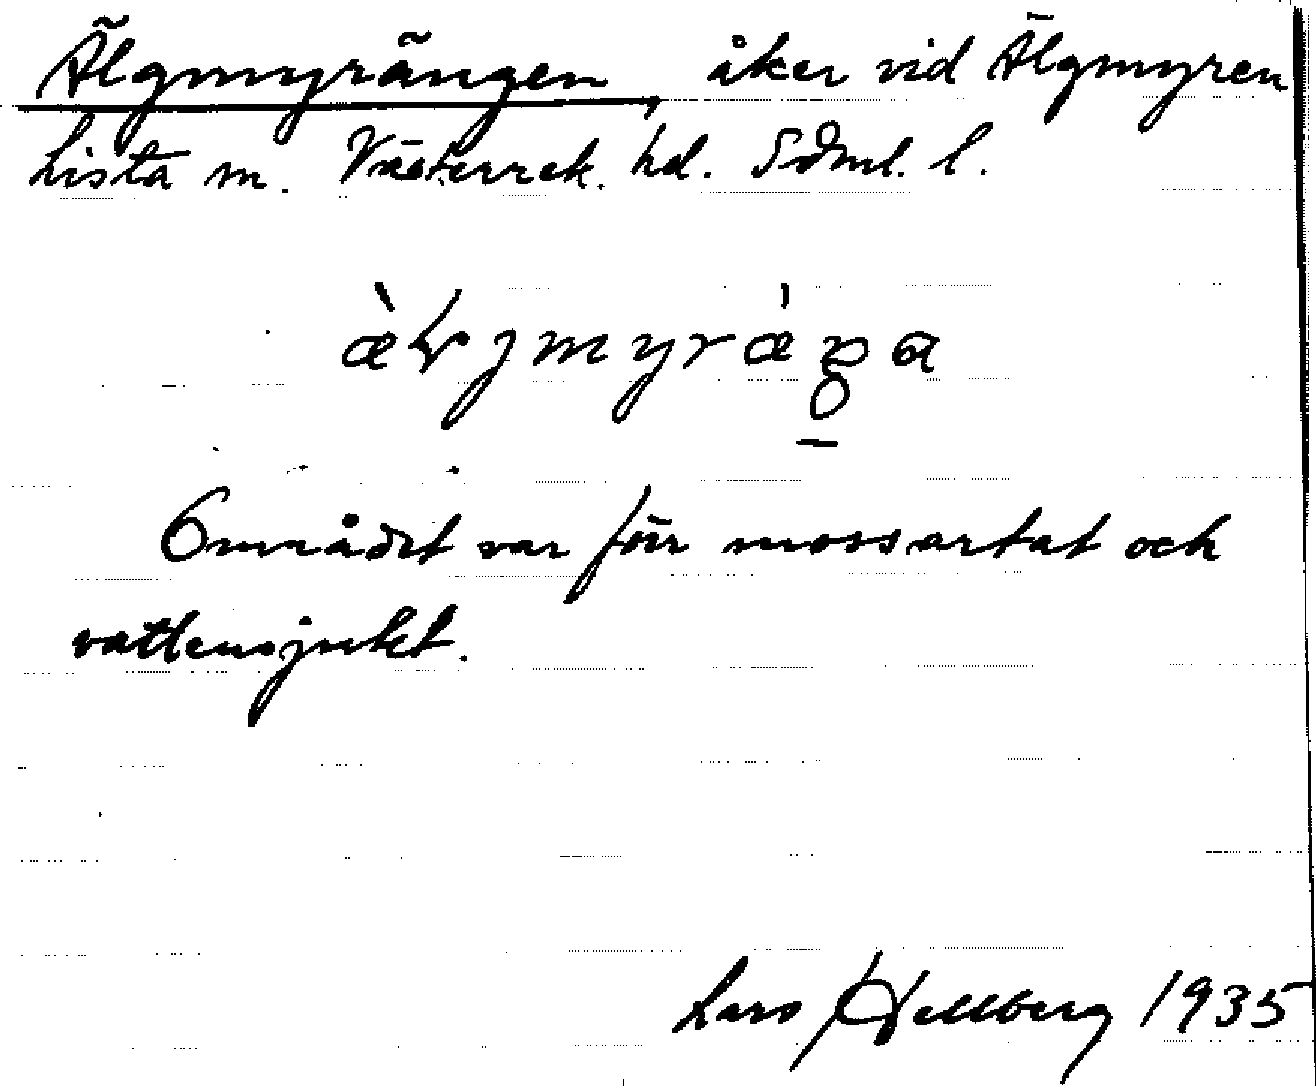 Älgmyrängen, åker vid Älgmyren
Lista sn. Västerrek. hd. Sdml. l.
Området var förr mossartat och
vattensjukt.
Lars Hellberg 1935